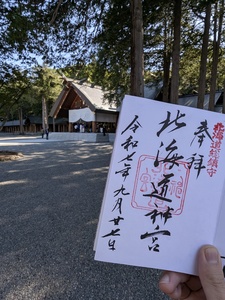 奉拝
北海道総鎮守
北海道神宮
令和七年九月廿七日